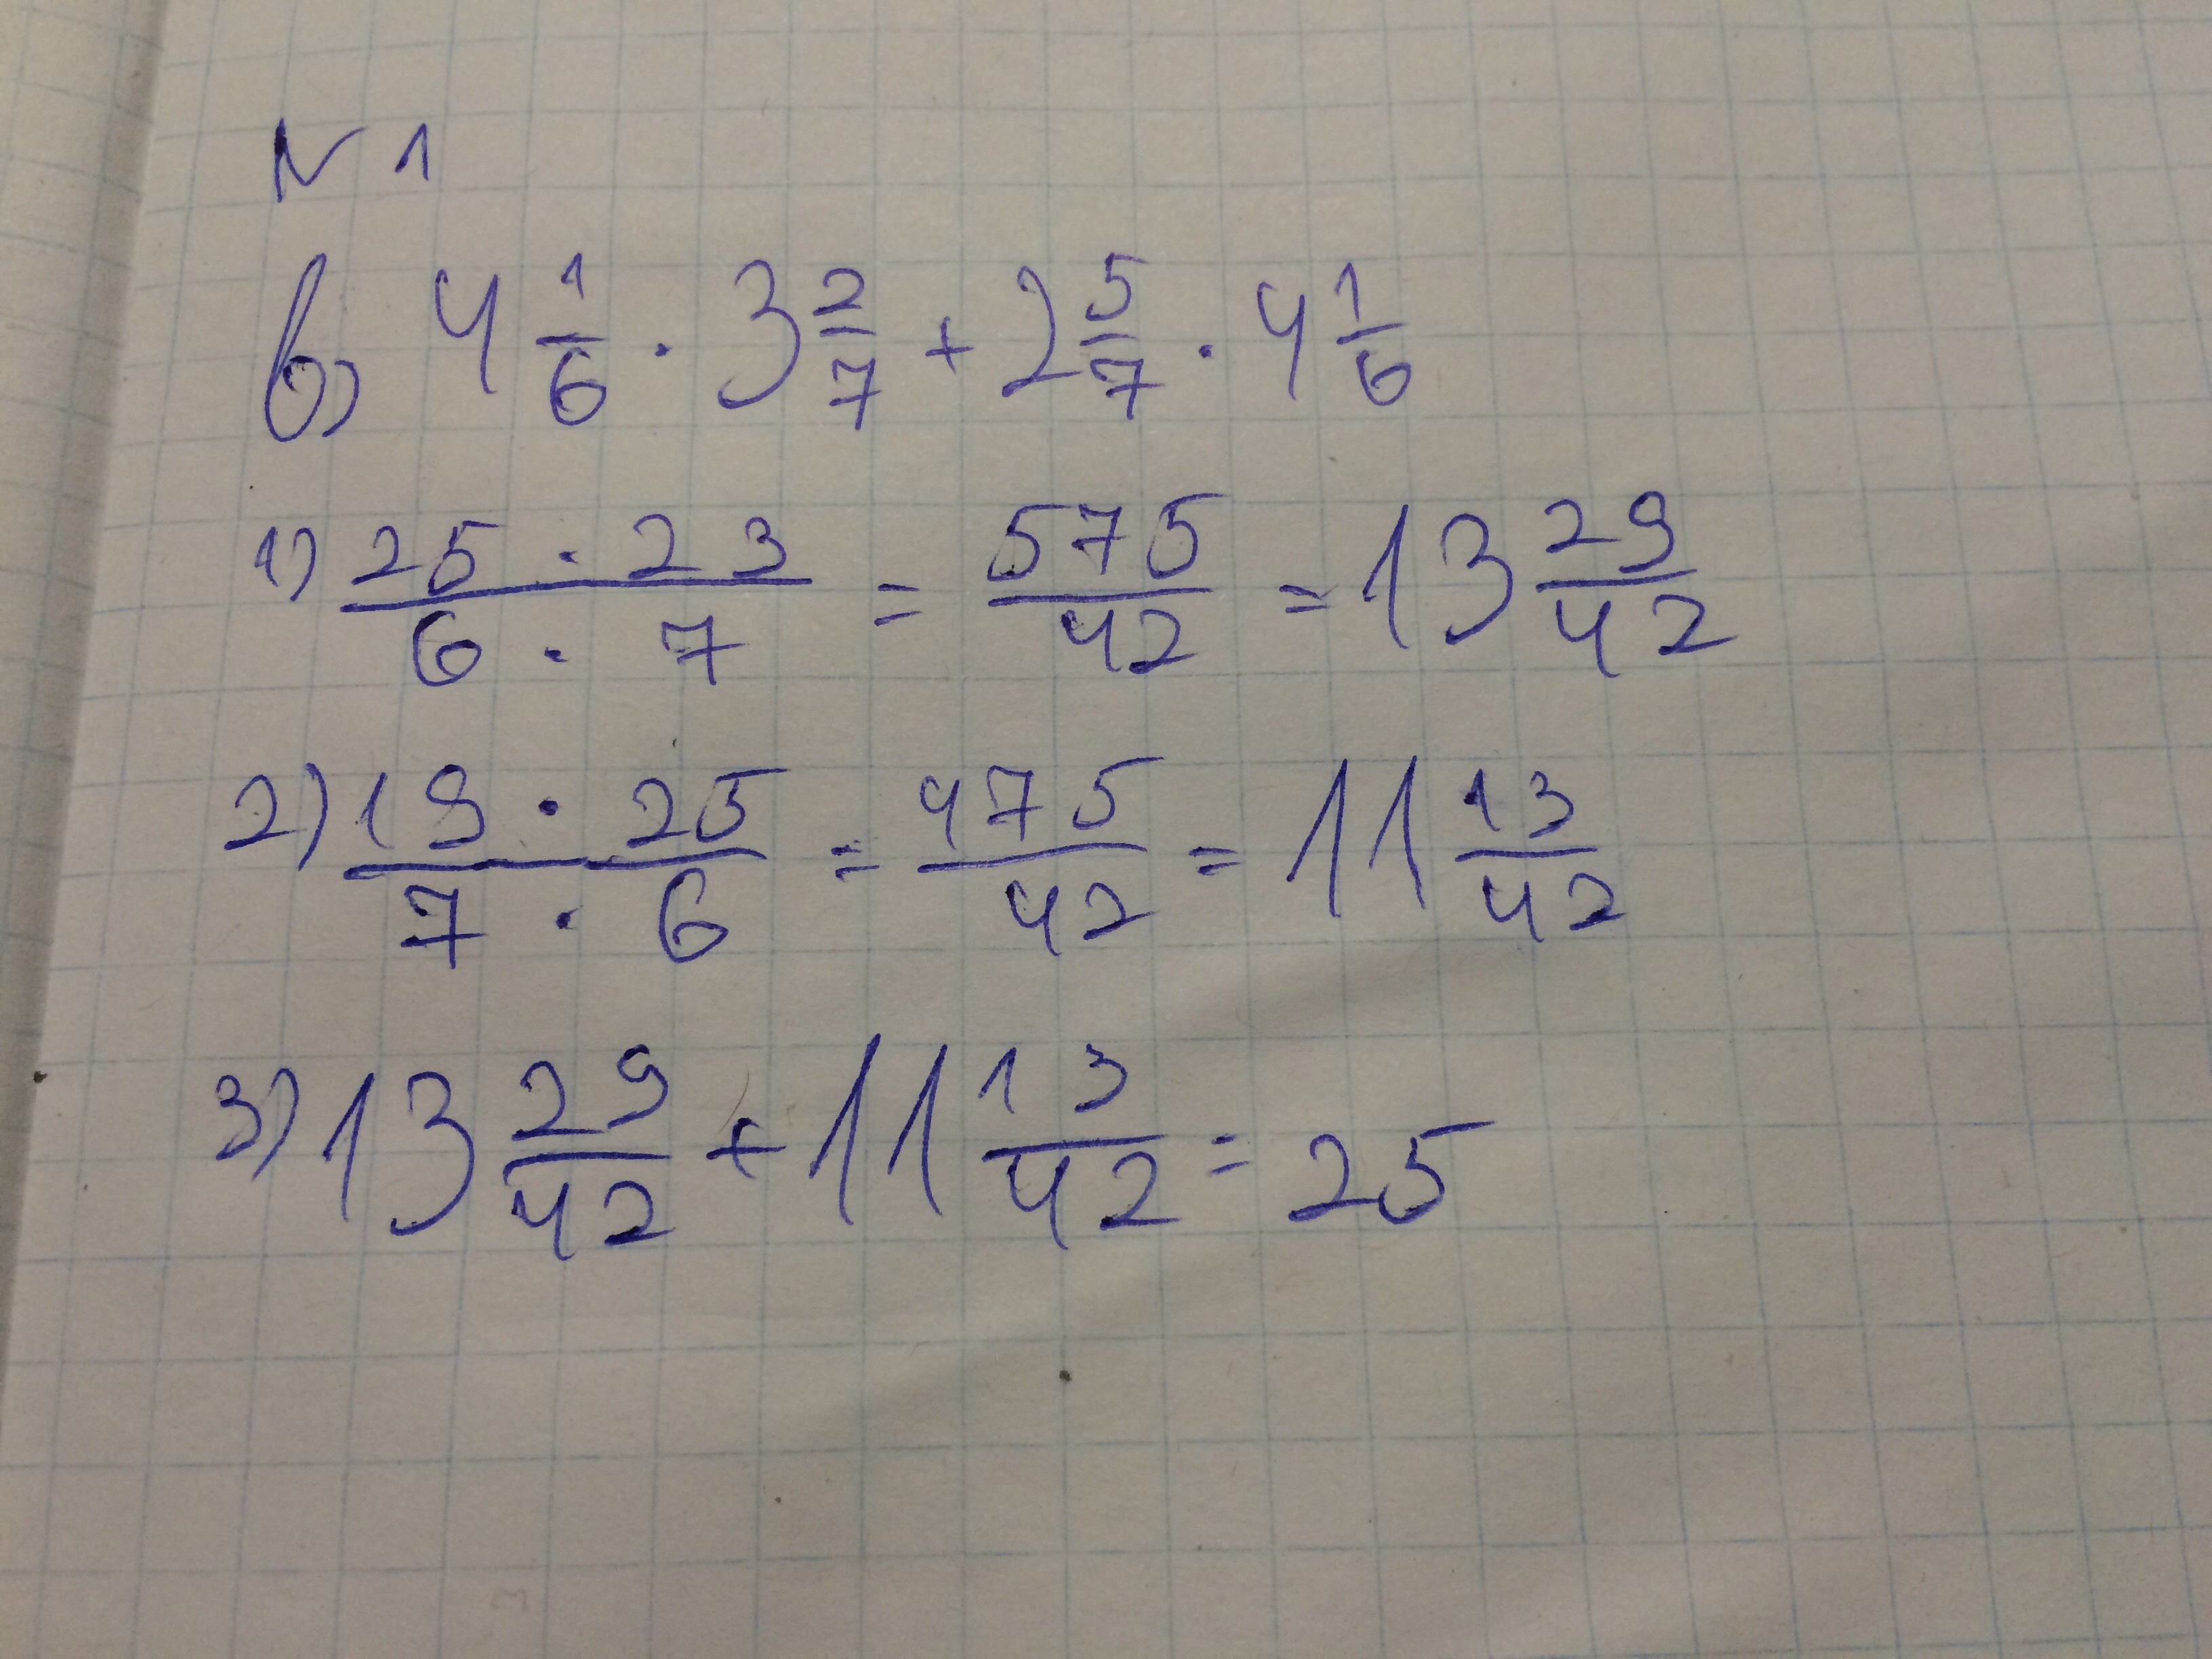 N 1
в) 4 1/6 · 3 2/7 + 2 5/7 · 4 1/6
1) 25 · 23 / 6 · 7 = 575/42 = 13 29/42
2) 19 · 25 / 7 · 6 = 475/42 = 11 13/42
3) 13 29/42 + 11 13/42 = 25